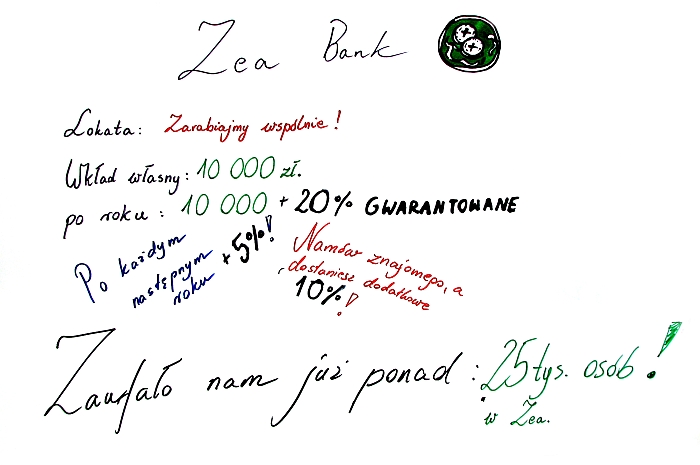 Zea Bank
Lokata: Zarabiajmy wspólnie!
Wkład własny: 10 000 zł.
po roku : 10 000 + 20% GWARANTOWANE
Po każdym
następnym
roku + 5%!
Namów znajomego, a
dostaniesz dodatkowe
10%!
Zaufało nam już ponad : 25tys. osób!
w Żea.